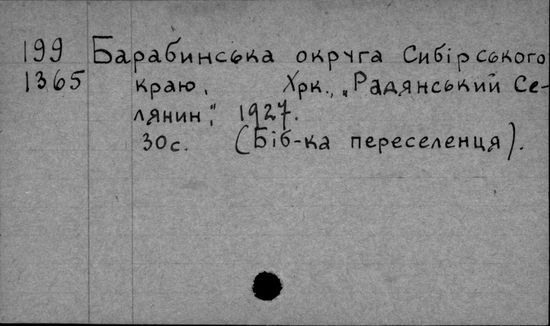 199 Барабинська округа Сибірського
1365 краю. Хрк., „Радянський Се-
лянин", 1927.
30с. (Біб-ка переселенця).